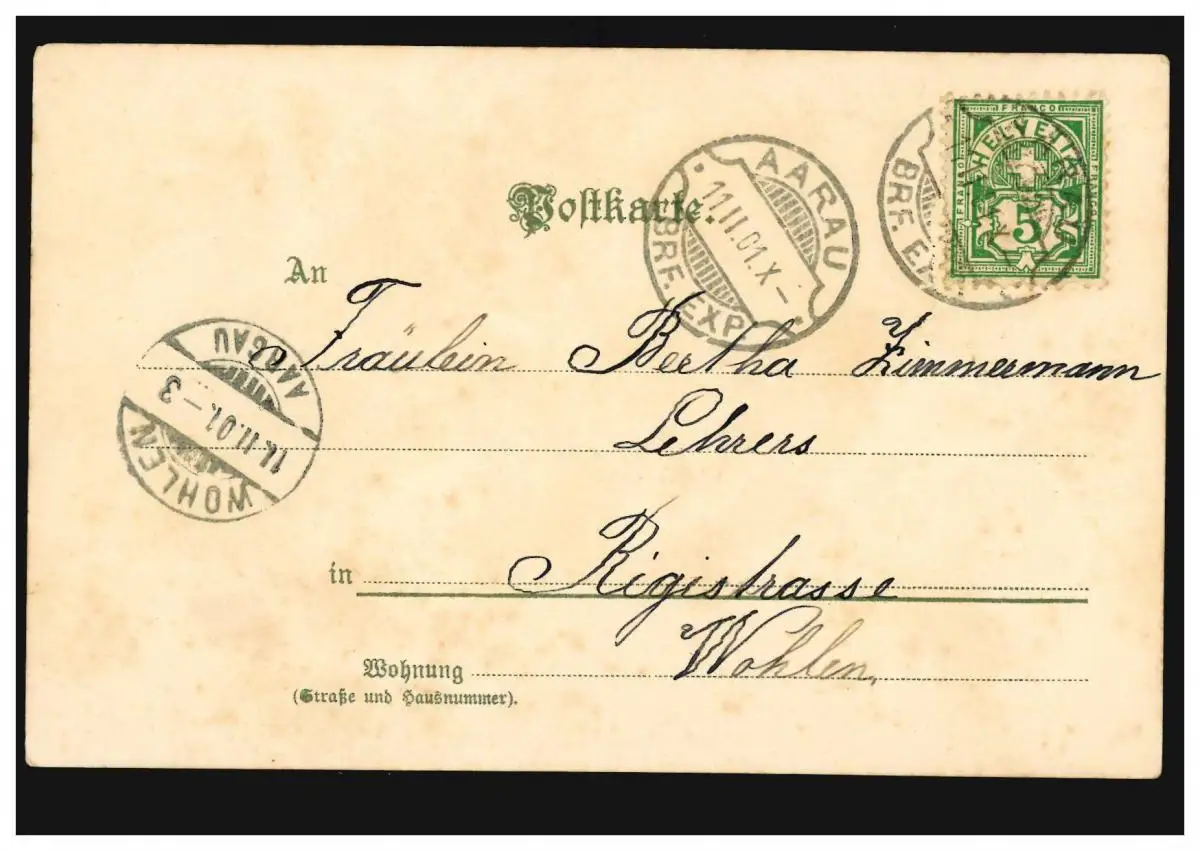 FRANCO
HELVETIA
FRANCO
FRANCO
5
AARAU
11.II.01.X–
BRF. EXP.
BRF. EX
Postkarte.
An
Fräulein Bertha Zimmermann
Lehrers
in Rigistrasse
Wohlen,
Wohnung
(Straße und Hausnummer).
WOHLEN
11.II.01.–3
AARGAU